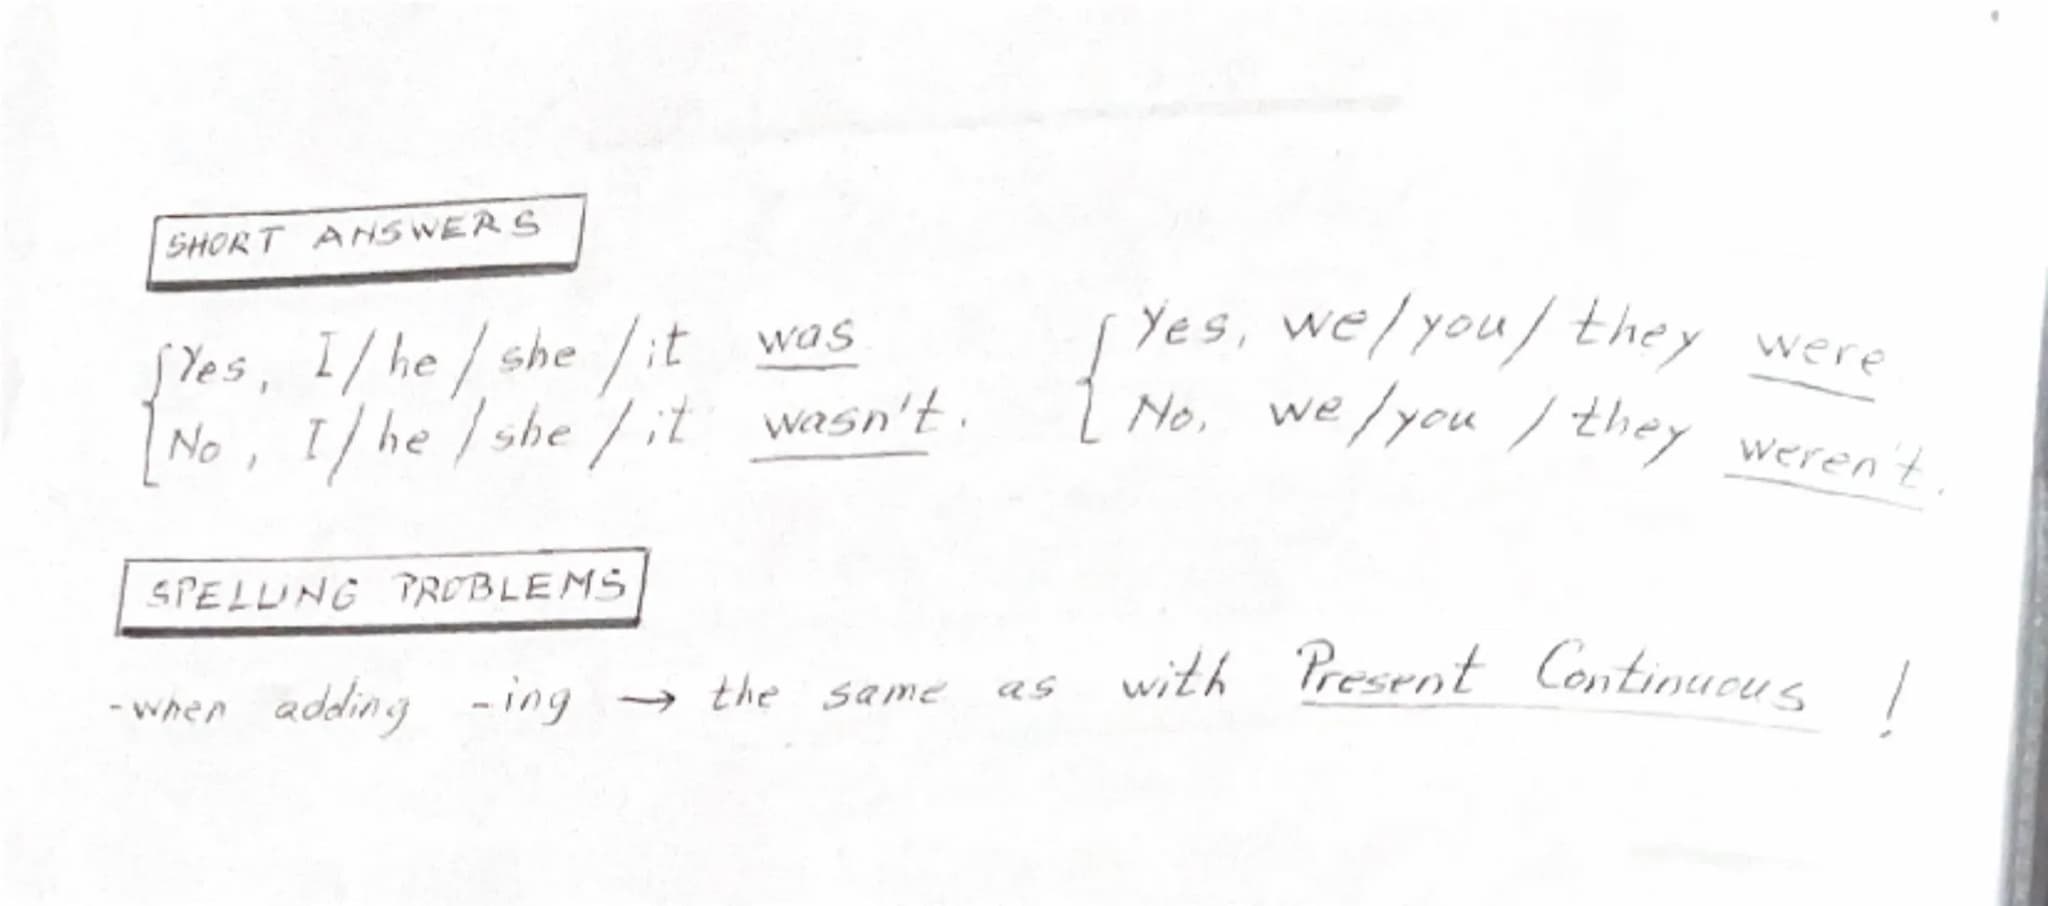 SHORT ANSWERS
Yes, I/he/she/it was
No, I/he/she/it wasn't.
Yes, we/you/they were
No, we/you/they weren't.
SPELLING PROBLEMS
-when adding -ing → the same as with Present Continuous!